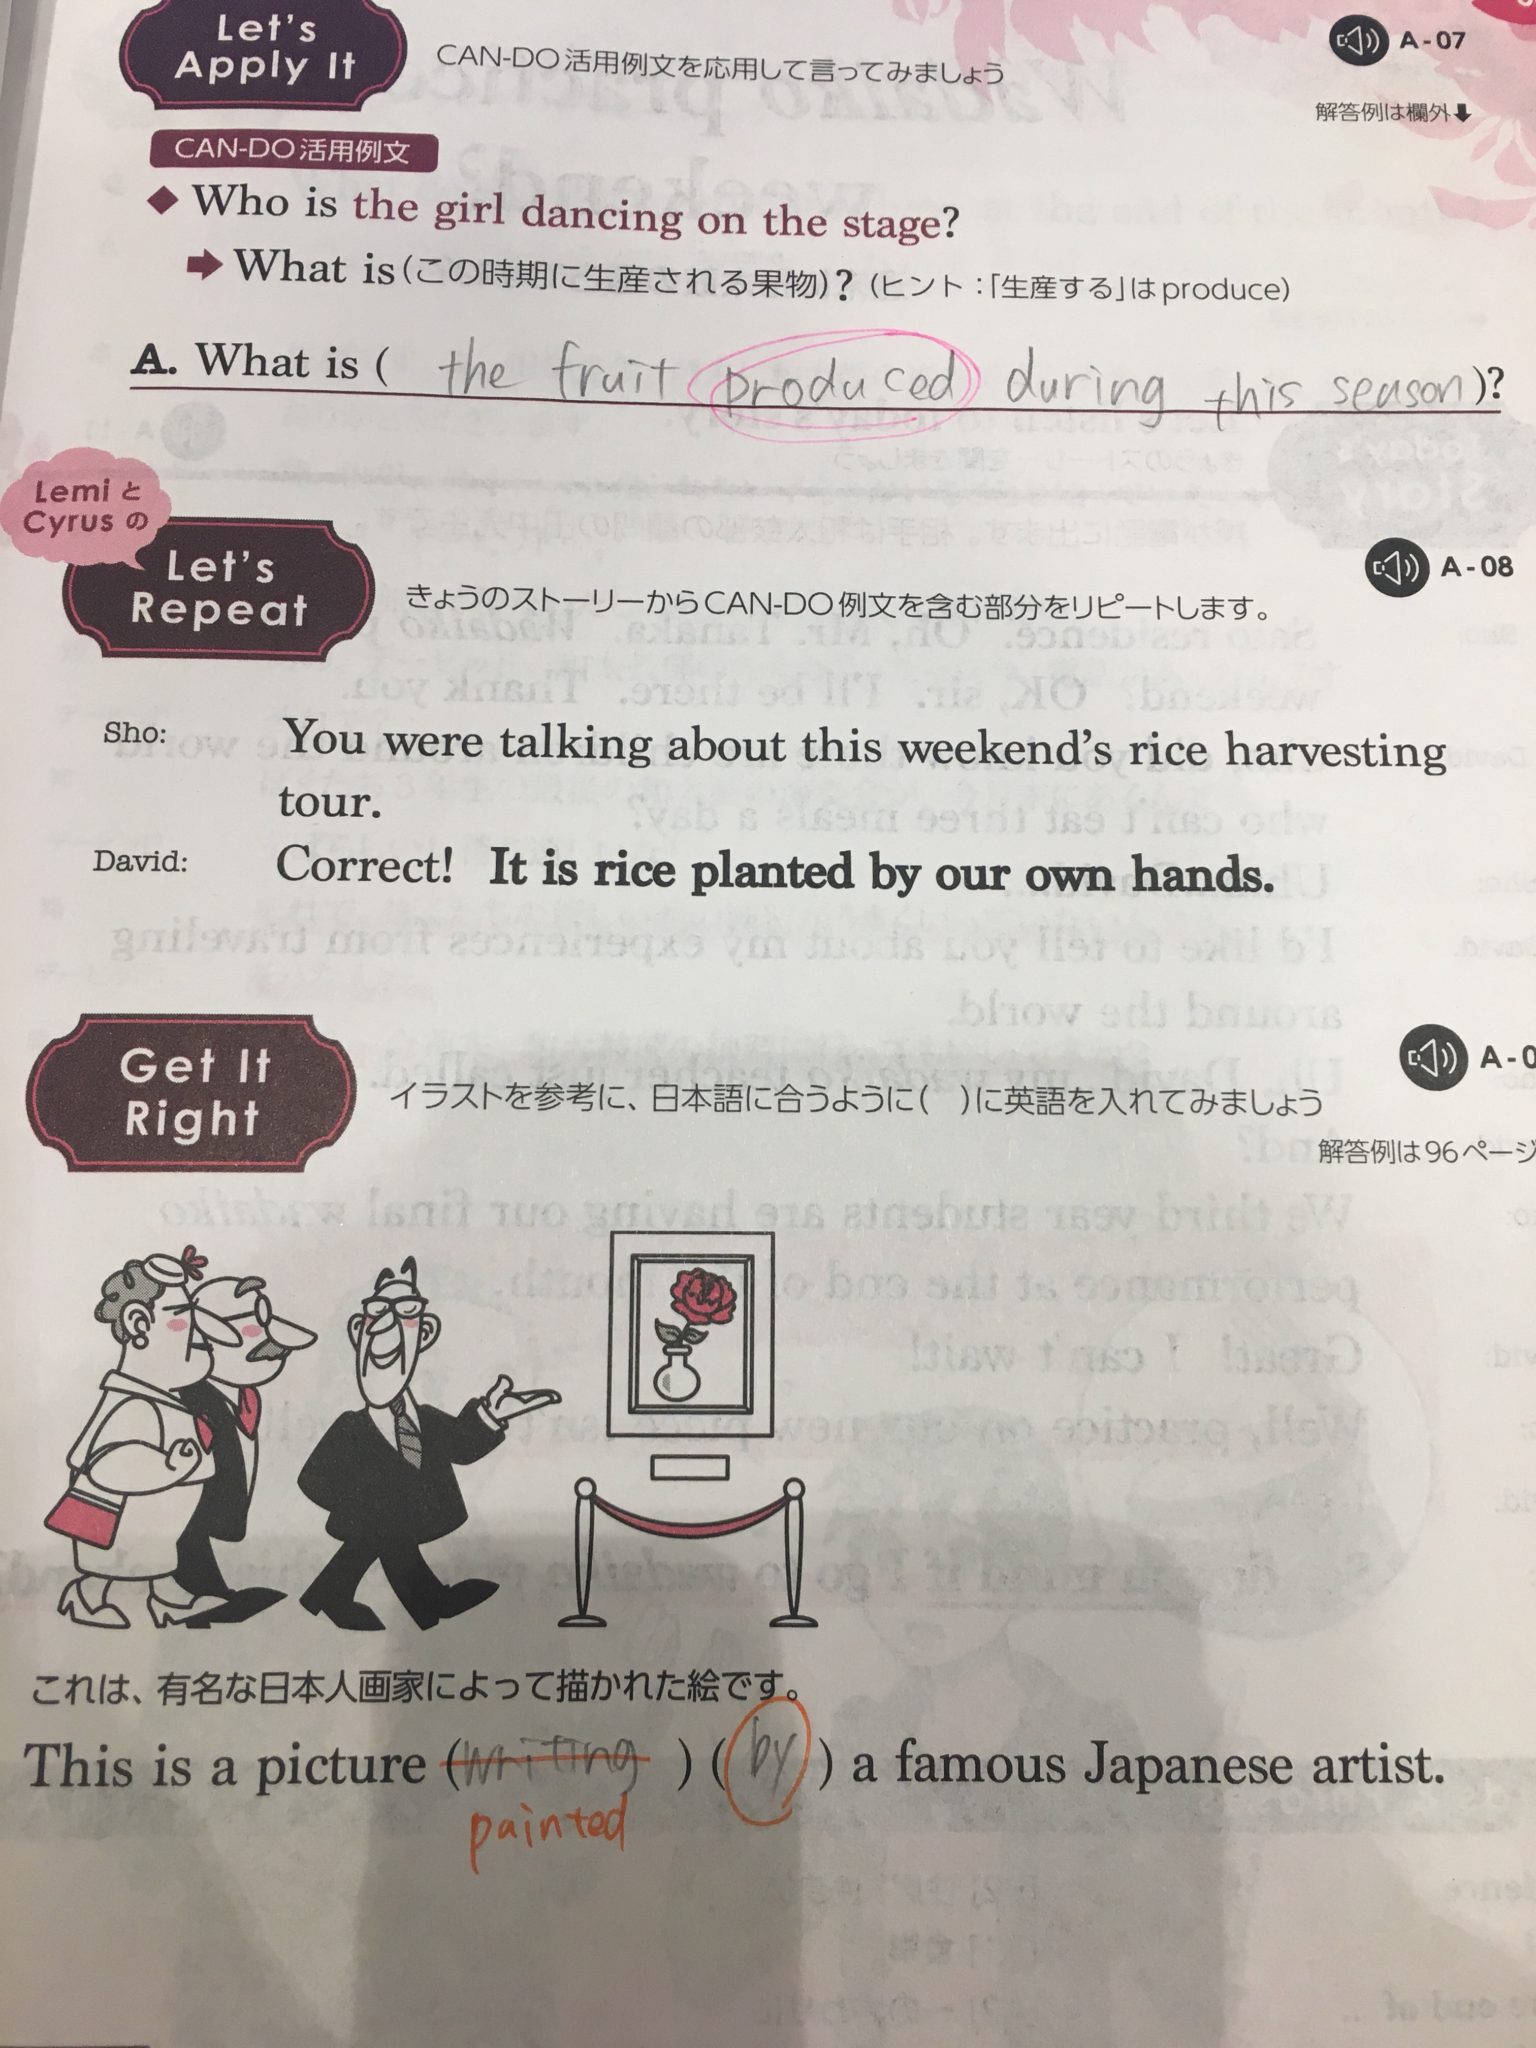 Let's
Apply It
CAN-DO活用例文を応用して言ってみましょう
A-07
解答例は欄外⬇
CAN-DO活用例文
◆ Who is the girl dancing on the stage?
➡ What is(この時期に生産される果物)? (ヒント:「生産する」はproduce)
A. What is ( the fruit produced during this season )?
Lemiと
Cyrusの
Let's
Repeat
きょうのストーリーからCAN-DO例文を含む部分をリピートします。
A-08
Sho: You were talking about this weekend's rice harvesting
tour.
David: Correct! It is rice planted by our own hands.
Get It
Right
イラストを参考に、日本語に合うように( )に英語を入れてみましょう
A-0
解答例は96ページ
これは、有名な日本人画家によって描かれた絵です。
This is a picture (writing ) ( by ) a famous Japanese artist.
painted